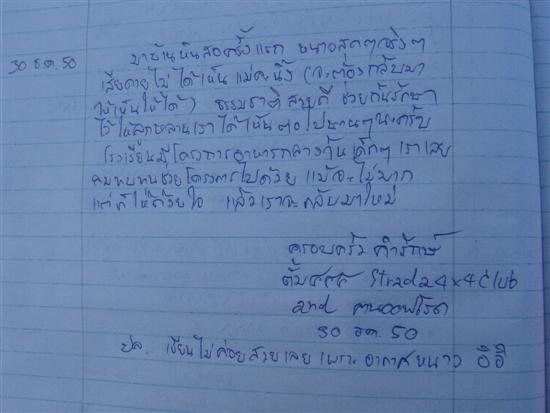 30 ธ.ค. 50 มาบ้านหินสองครั้งแรก หนาวสุดๆจริงๆ
เสียดายไม่ได้เห็นแม่คะนิ้ง (จะต้องกลับมา
ให้เห็นให้ได้) ธรรมชาติสวยดี ช่วยกันรักษา
ไว้ให้ลูกหลานเราได้เห็นต่อไปนานๆนะครับ
โรงเรียนมีโครงการอาหารกลางวันเด็กๆ เราเลย
สมทบทุนช่วยโครงการไปด้วย แม้จะไม่มาก
แต่ก็ให้ด้วยใจ แล้วเราจะกลับมาใหม่
ครอบครัว คำรักษ์
ตั้ม Strada 4x4 Club
and คนออฟโรด
30 ธค. 50
ปล. เขียนไม่ค่อยสวยเลย เพราะอากาศหนาว อิอิ